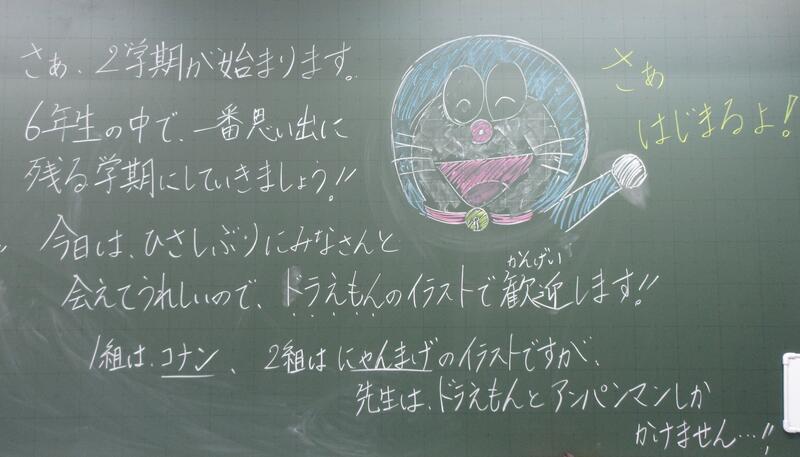 さぁ、2学期が始まります。
6年生の中で、一番思い出に
残る学期にしていきましょう!!
今日は、ひさしぶりにみなさんと
会えてうれしいので、ドラえもんのイラストで歓迎します!!
かんげい
1組は、コナン、2組はにゃんまげのイラストですが、
先生は、ドラえもんとアンパンマンしか
かけません…!!
さぁ
はじまるよ!